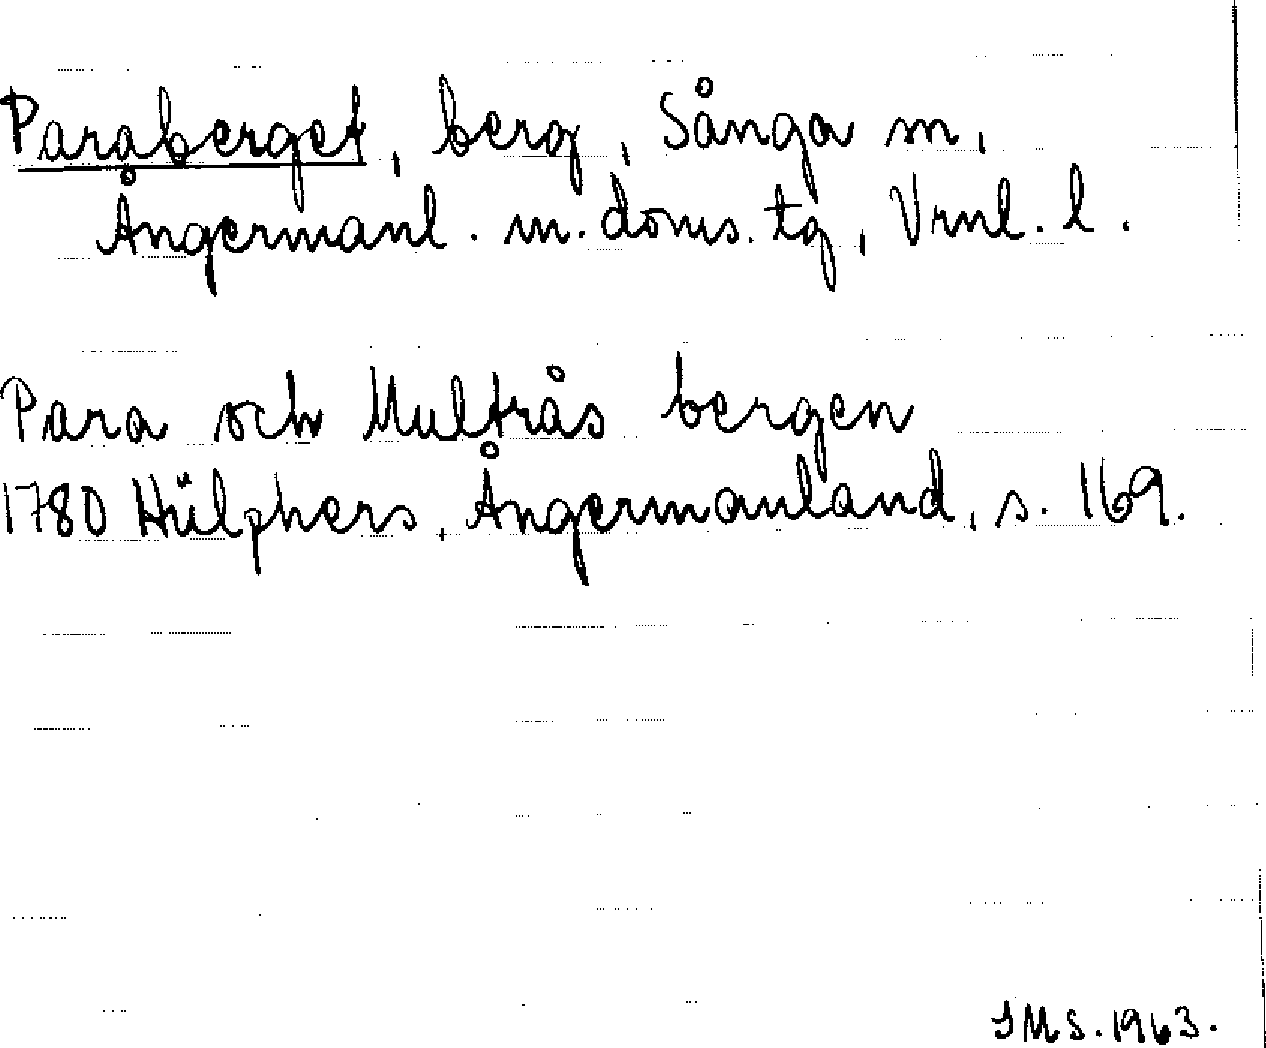 Paraberget, berg, Sånga sn,
Ångermanl. m. doms. tg, Vrnl. l.
Para och Multrås bergen
1780 Hülphers, Ångermanland, s. 169.
IMS. 1963.